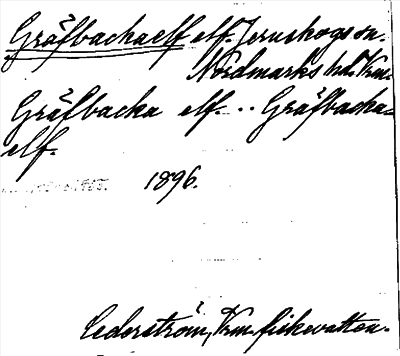 Gräfbackaelf elf. Järnskogs sn.
Nordmarks hd. Vrm.
Gräfbacka elf. .. Gräfbacka-
elf.
1896.
Cederström, Vrm. fiskevatten.